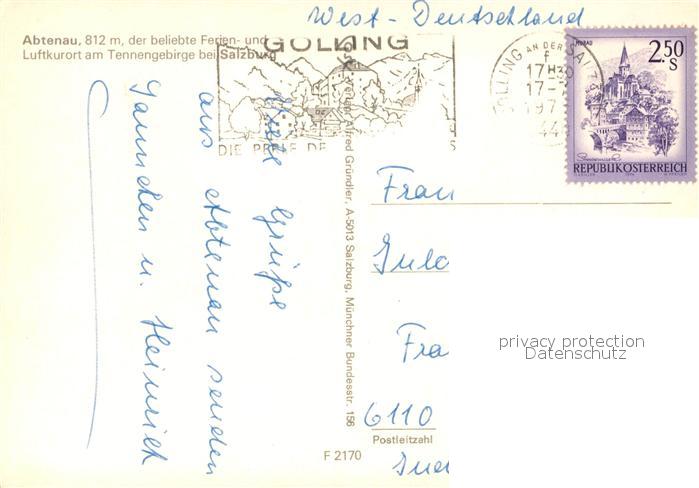 West-Deutschland
Abtenau, 812 m, der beliebte Ferien- und
Luftkurort am Tennengebirge bei Salzburg
GOLLING
DIE PERLE DE
S
GOLLING AN DER SALZ
17-
197
2.50
S
MURAU
REPUBLIK ÖSTERREICH
Viele Grüße
aus Abtenau senden
Jannchen u. Heinrich
Alfred Gründler, A-5013 Salzburg, Münchner Bundesstr. 156
Frau
Fra
6110
Postleitzahl
F 2170
privacy protection
Datenschutz